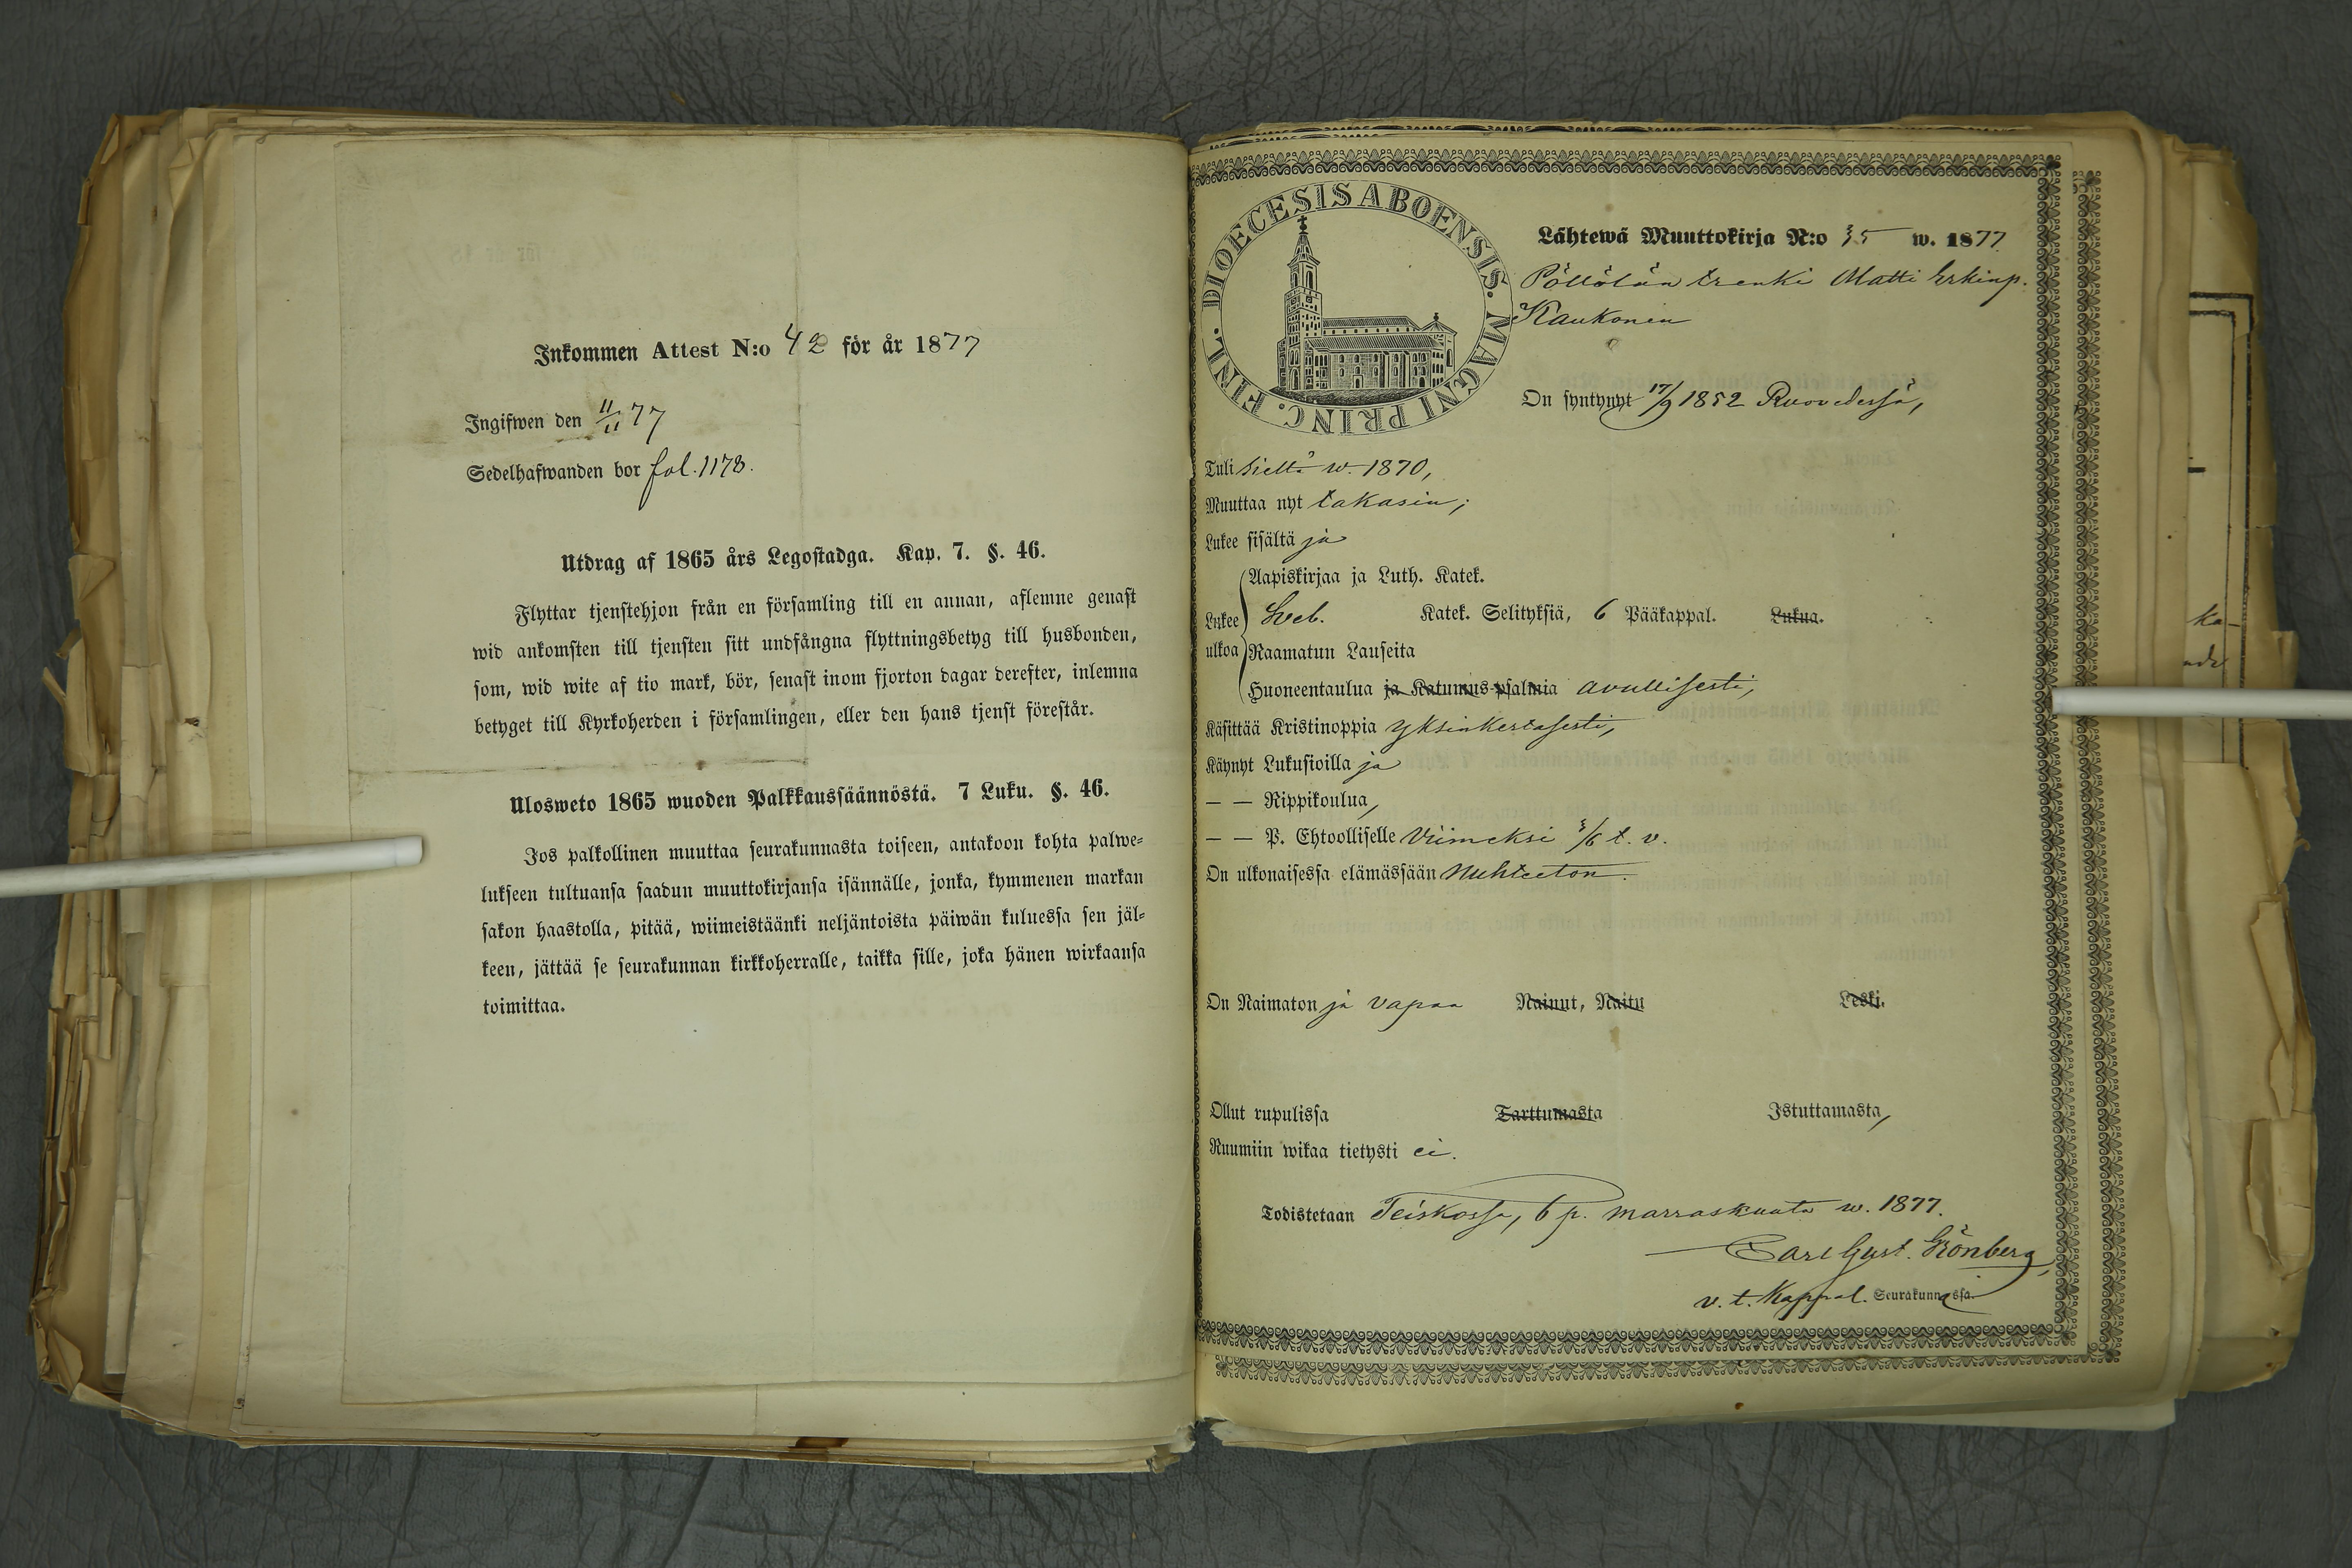 Inkommen Attest N:o 42 för år 1877
Ingifwen den 11/11 77
Sedelhafwanden bor fol. 1178.
Utdrag af 1865 års Legostadga. Kap. 7. §. 46.
Flyttar tjenstehjon från en församling till en annan, aflemne genast
wid ankomsten till tjensten sitt undfångna flyttningsbetyg till husbonden,
som, wid wite af tio mark, bör, senast inom fjorton dagar derefter, inlemna
betyget till Kyrkoherden i församlingen, eller den hans tjenst förestår.
Ulosweto 1865 wuoden Palkkaussäännöstä. 7 Luku. §. 46.
Jos palkollinen muuttaa seurakunnasta toiseen, antakoon kohta palwe-
lukseen tultuansa saadun muuttokirjansa isännälle, jonka, kymmenen markan
sakon haastolla, pitää, wiimeistäänki neljäntoista päiwän kuluessa sen jäl-
keen, jättää se seurakunnan kirkkoherralle, taikka sille, joka hänen wirkaansa
toimittaa.
DIOECESIS ABOENSIS. MAGNI PRINC. FINL.
Lähtewä Muuttokirja N:o 35 w. 1877
Pöllölän trenki Matti Erkinp.
Kaukonen
On syntynyt 17/9 1852 Ruovedessä,
Tuli sieltä w. 1870,
Muuttaa nyt takasin;
Lukee sisältä ja
Aapiskirjaa ja Luth. Katek.
Lukee ulkoa Sveb. Katek. Selityksiä, 6 Pääkappal. Lukua.
Raamatun Lauseita
Huoneentaulua ja Katumus-psalmia avullisesti,
Käsittää Kristinoppia yksinkertasesti,
Käynyt Lukusioilla ja
— — Rippikoulua,
— — P. Ehtoolliselle Viimeksi 3/6 t. v.
On ulkonaisessa elämässään Nuhteeton.
On Naimaton ja vapaa Nainut, Naitu Leski.
Ollut rupulissa Tarttumasta Istuttamasta,
Ruumiin wikaa tietysti ei.
Todistetaan Teiskossa, 6 p. marraskuuta w. 1877.
Carl Gust. Grönberg,
v. t. Kappal. Seurakunnassa.
ka-